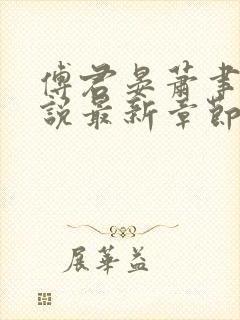 傅君晏萧事
说最新章節
展華益